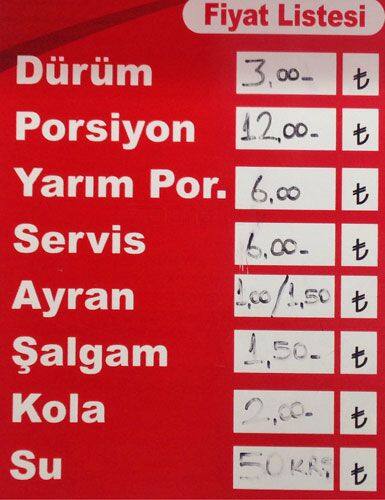 Fiyat Listesi
Dürüm 3,00- ₺
Porsiyon 12,00- ₺
Yarım Por. 6,00 ₺
Servis 6,00- ₺
Ayran 1,00/1,50 ₺
Şalgam 1,50- ₺
Kola 2,00- ₺
Su 50 KRŞ ₺